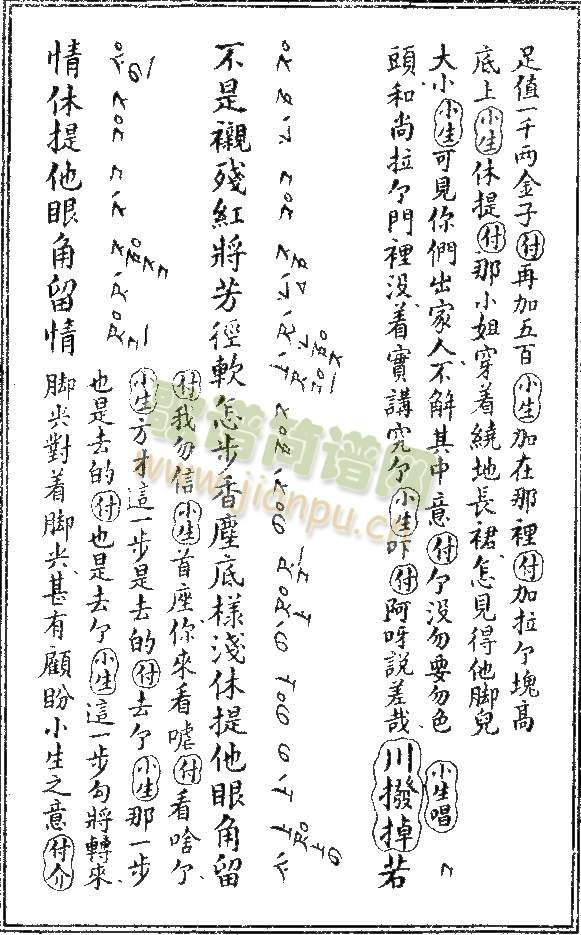 足值一千两金子付再加五百小生加在那裡付加拉个塊高
底上小生休提付那小姐穿着繞地長裙怎見得他脚兒
大小小生可見你們出家人不解其中意付个没勿要勿色
頭和尚拉个門裡没着實講究个小生咋付阿呀説差哉
小生唱
川撥掉若
不是襯殘紅將芳徑軟怎步香塵底樣淺休提他眼角留
付我勿信小生首座你來看嘘付看啥个
小生方才這一步是去的付去个小生那一步
也是去的付也是去个小生這一步勾將轉來
情休提他眼角留情
脚尖對着脚尖甚有顧盼小生之意付介
歌谱简谱网
www.jianpu.cn